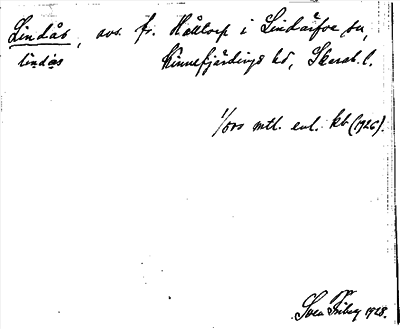 Lindås, avs. fr. Hålltorp i Lindärfva sn,
lindås Kinnefjärdings hd, Skarab. l.
1/500 mtl. enl. kb (1926).
Sven Friberg 1928.